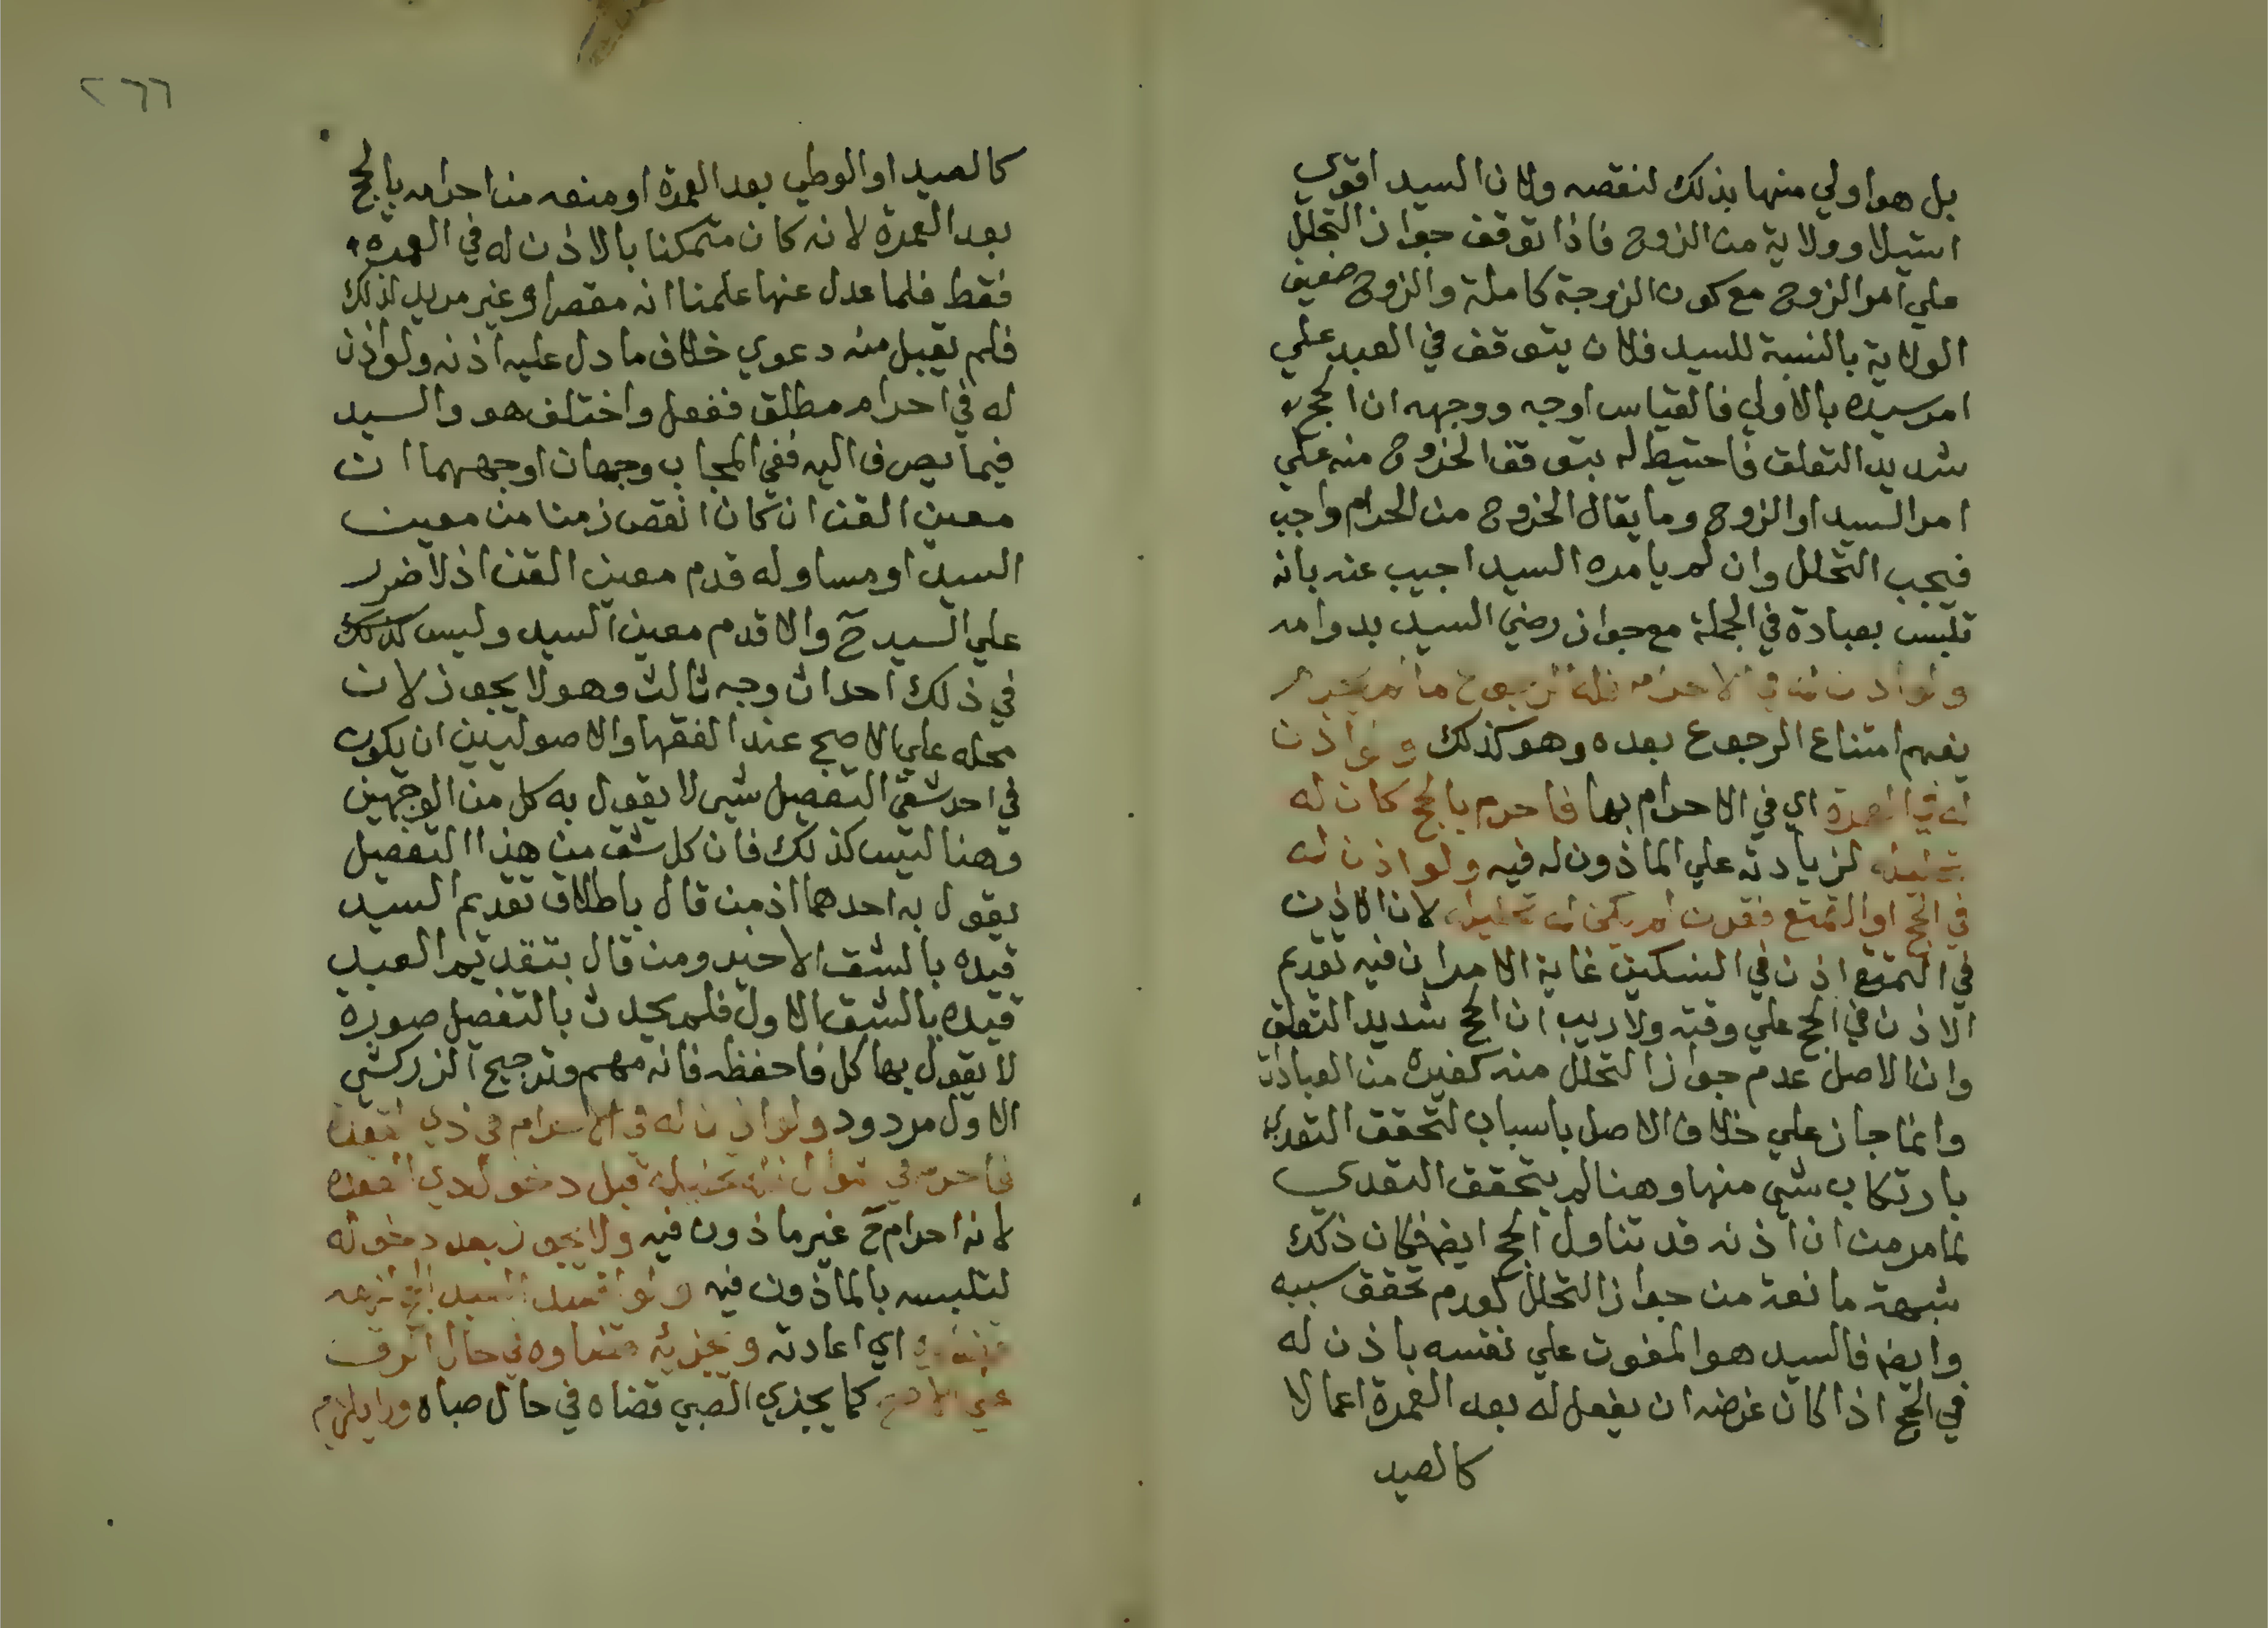 بل هو اولي منها بذلك لنقصه ولان السيد اقوي
استيلا وولاية من الزوج فاذا توقف جواز التحلل
علي امر الزوج مع كون الزوجة كاملة والزوج ضعيف
الولاية بالنسبة للسيد فلان يتوقف في العبد علي
امر سيده بالاولي فالقياس اوجه ووجهه ان الحج
شديد التعلق فاحتيط له بتوقف الخروج منه علي
امر السيد او الزوج وما يقال الخروج من الحرام واجب
فيجب التحلل وان لم يامره السيد اجيب عنه بانه
تلبس بعبادة في الجملة مع جواز رضي السيد بدوامه
ولو اذن له في الاحرام فله الرجوع ما لم يحرم
يفهم امتناع الرجوع بعده وهو كذلك ولو اذن
له في العمرة اي في الاحرام بها فاحرم بالحج كان له
تحليله لزيادته علي الماذون له فيه ولو اذن له
في الحج او التمتع فقرن لم يكن له تحليله لان الاذن
في التمتع اذن في النسكين غاية الامر ان فيه تقديم
الاذن في الحج علي وقته ولا ريب ان الحج شديد التعلق
وان الاصل عدم جواز التحلل منه كغيره من العبادات
وانما جاز علي خلاف الاصل باسباب لتحقق التعدي
بارتكاب شي منها وهنا لم يتحقق التعدي
لما مر من ان اذنه قد تناول الحج ايضا فكان ذلك
شبهة مانعة من جواز التحلل لعدم تحقق سببه
وايضا فالسيد هو المفوت علي نفسه باذن له
في الحج اذا كان غرضه ان يفعل له بعد العمرة اعمالا
كالصيد
٢٦٦
كالصيد او الوطي بعد العمرة او منعه من احرامه بالحج
بعد العمرة لانه كان متمكنا بالاذن له في العمرة
فقط فلما عدل عنها علمنا انه مقصر او غير مريد لذلك
فلم تقبل منه دعوي خلاف ما دل عليه اذنه ولو اذن
له في احرام مطلق ففعل واختلف هو والسيد
فيما يصرف اليه ففي المجاب وجهان اوجههما ان
معين القن ان كان انقص زمنا من معين
السيد او مساو له قدم معين القن اذ لا ضرر
علي السيد ح والا قدم معين السيد وليس كذلك
في ذلك احداث وجه ثالث وهو لا يجوز لان
محله علي الاصح عند الفقها والاصوليين ان يكون
في احد شقي التفصيل شي لا يقول به كل من الوجهين
وهنا ليس كذلك فان كل شق من هذا التفصيل
يقول به احدهما اذ من قال باطلاق تقديم السيد
قيده بالشق الاخير ومن قال بتقديم العبد
قيده بالشق الاول فلم يحدث بالتفصيل صورة
لا يقول بها كل فاحفظه فانه مهم وترجيح الزركشي
الاول مردود ولو اذن له في الاحرام في ذي القعدة
فاحرم في شوال فله تحليله قبل دخول ذي القعدة
لانه احرام ح غير ماذون فيه ولا يجوز بعد دخوله
لتلبسه بالماذون فيه ولو افسد العبد الحج لزمه
قضاوه اي اعادته ويجزيه قضاوه في حال الرق
علي الاصح كما يجزي الصبي قضاه في حال صباه ولا يلزم